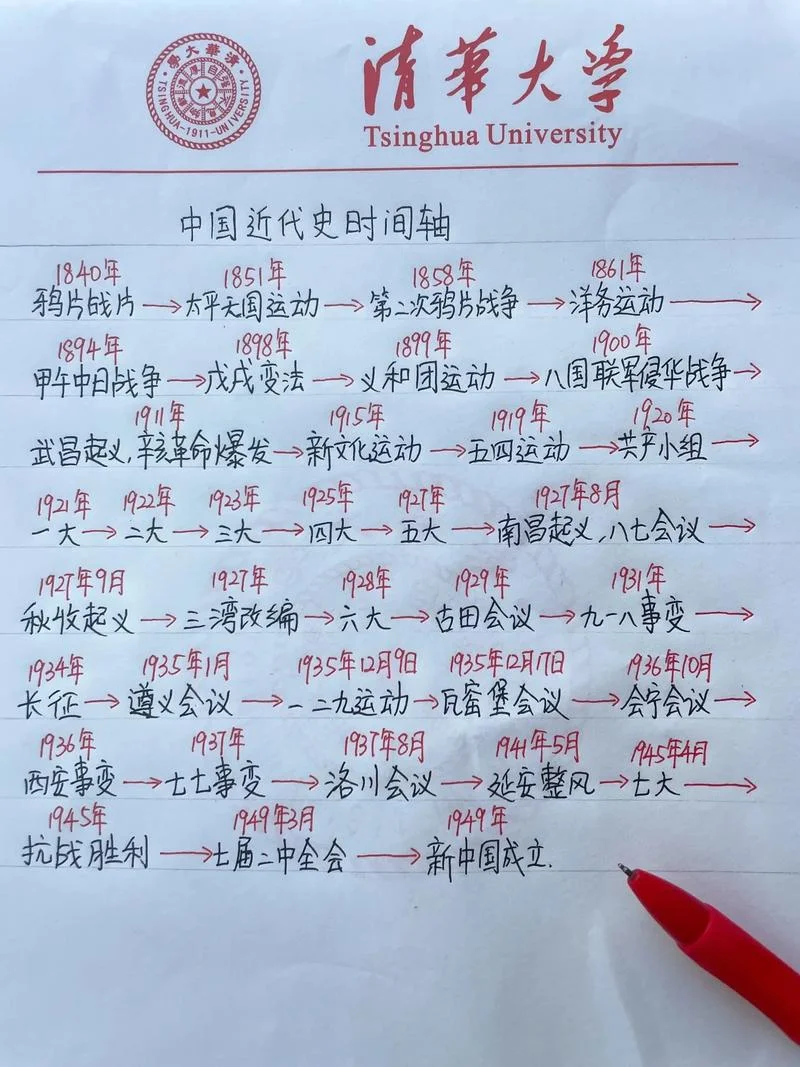 清華大學
TSINGHUA-1911-UNIVERSITY
清華大学
Tsinghua University
中国近代史时间轴
1840年 1851年 1858年 1861年
鸦片战片→太平天国运动→第二次鸦片战争→洋务运动→
1894年 1898年 1899年 1900年
甲午中日战争→戊戌变法→义和团运动→八国联军侵华战争→
1911年 1915年 1919年 1920年
武昌起义,辛亥革命爆发→新文化运动→五四运动→共产小组→
1921年 1922年 1923年 1925年 1927年 1927年8月
一大→二大→三大→四大→五大→南昌起义,八七会议→
1927年9月 1927年 1928年 1929年 1931年
秋收起义→三湾改编→六大→古田会议→九一八事变→
1934年 1935年1月 1935年12月9日 1935年12月17日 1936年10月
长征→遵义会议→一二九运动→瓦窑堡会议→会宁会议→
1936年 1937年 1937年8月 1941年5月 1945年4月
西安事变→七七事变→洛川会议→延安整风→七大→
1945年 1949年3月 1949年
抗战胜利→七届二中全会→新中国成立.